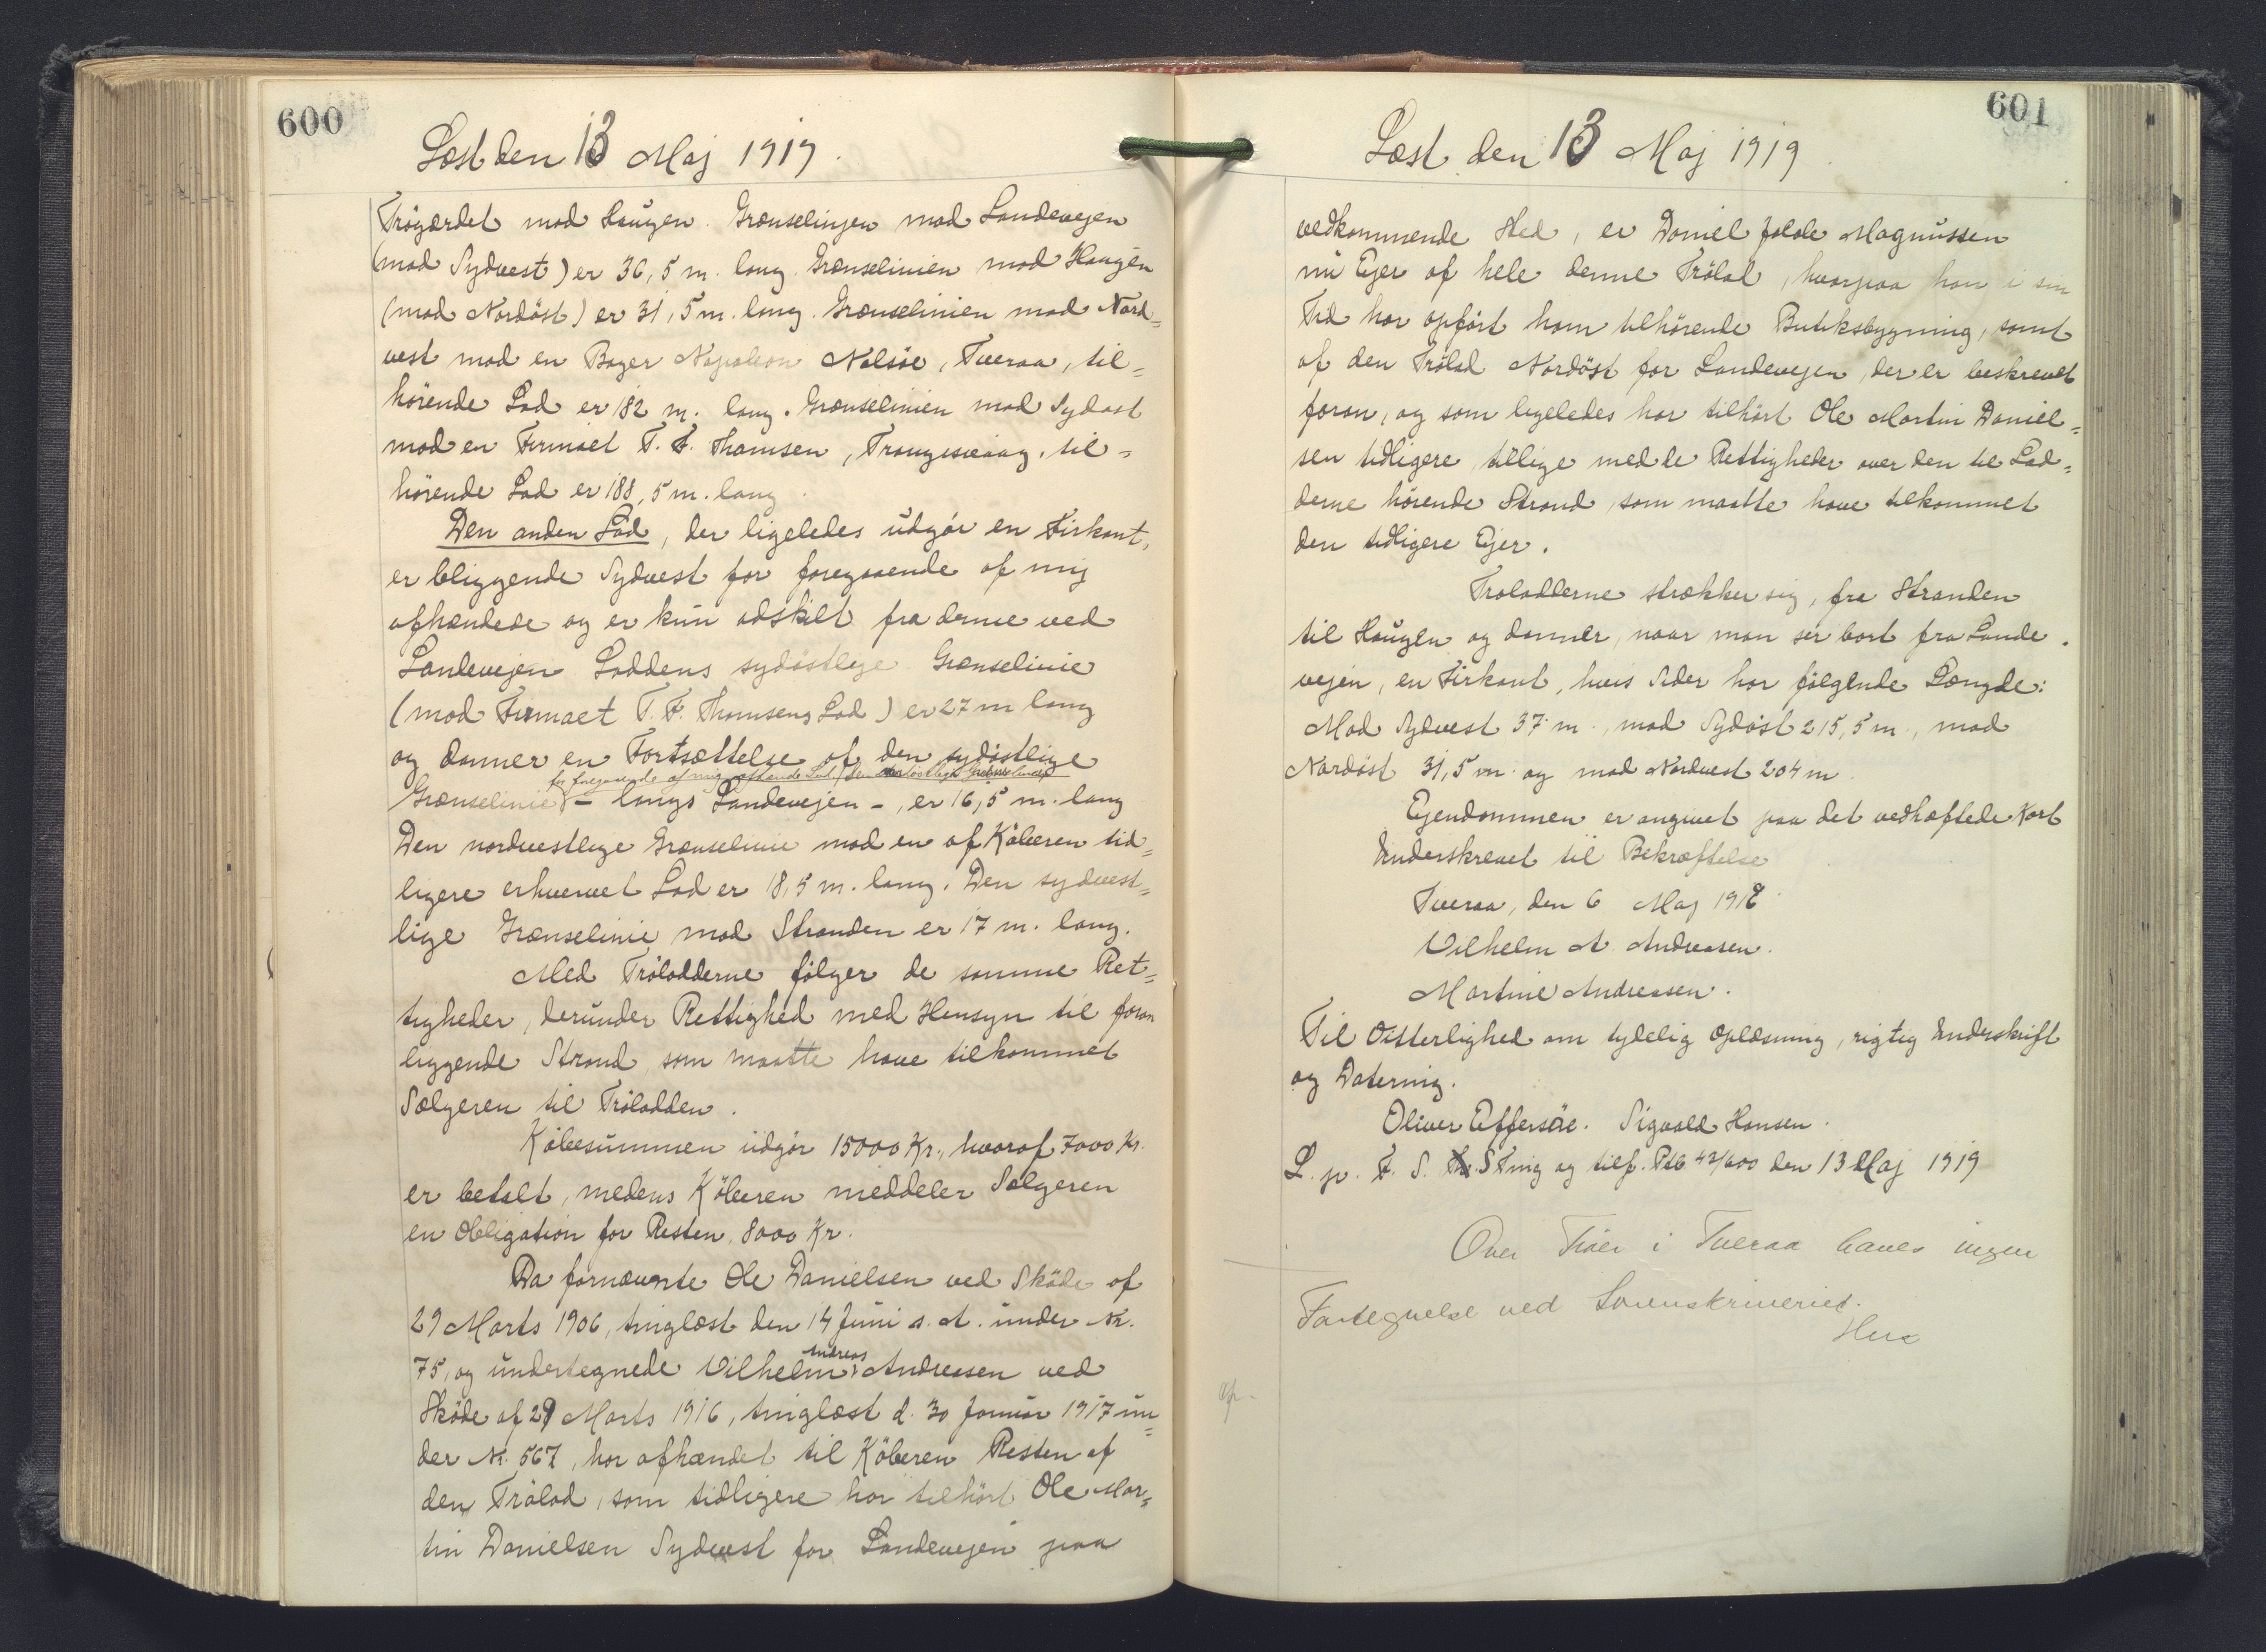 600
Læst den 13 Maj 1919.
Trögærdet mod Haugen. Grænselinjen mod Landevejen
(mod Sydvest) er 36,5 m. lang. Grænselinien mod Haugen
(mod Nordöst) er 31,5 m. lang. Grænselinien mod Nord=
vest mod en Bager Napoleon Nolsöe, Tveraa, til=
hörende Lod er 182 m. lang. Grænselinien mod Sydöst
mod en Firmaet T. F. Thomsen, Trangisvaag, til=
hörende Lod er 188,5 m. lang.
Den anden Lod, der ligeledes udgör en Firkant,
er bliggende Sydvest for foregaaende af mig
afhændede og er kun adskilt fra denne ved
Landevejen. Loddens sydöstlige Grænselinie
(mod Firmaet T. F. Thomsens Lod) er 27 m lang
og danner en Fortsættelse af den sydöstlige
for foregaaende af mig afhændede Lod / Den nordöstlige Grænselinie
Grænselinie - langs Landevejen -, er 16,5 m. lang
Den nordvestlige Grænselinie mod en af Köberen tid=
ligere erhvervet Lod er 18,5 m. lang. Den sydvest=
lige Grænselinie mod Stranden er 17 m. lang.
Med Trölodderne fölger de samme Ret=
tigheder, derunder Rettighed med Hensyn til foran
liggende Strand, som maatte have tilkommet
Sælgeren til Trölodden.
Köbesummen udgör 15000 Kr., hvoraf 7000 Kr.
er betalt, medens Köberen meddeler Sælgeren
en Obligation for Resten 8000 Kr.
Da fornævnte Ole Danielsen ved Sköde af
29 Marts 1906, tinglæst den 14 Juni s. A. under Nr.
75, og undertegnede Vilhelm Andreas Andreasen ved
Sköde af 29 Marts 1916, tinglæst d. 30 Januar 1917 un=
der Nr. 567, har afhændet til Köberen Resten af
den Trölod, som tidligere har tilhört Ole Mar=
tin Danielsen Sydvest for Landevejen paa
601
Læst den 13 Maj 1919.
vedkommende Sted, er Daniel Jakob Magnussen
nu Ejer af hele denne Trölod, hvorpaa han i sin
Tid har opfört ham tilhörende Butiksbygning, samt
af den Trölod Nordöst for Landevejen, der er beskrevet
foran, og som ligeledes har tilhört Ole Martin Daniel=
sen tidligere, tillige med de Rettigheder over den til Lod=
derne hörende Strand, som maatte have tilkommet
den tidligere Ejer.
Trolodderne strækker sig, fra Stranden
til Haugen og danner, naar man ser bort fra Lande.
vejen, en Firkant, hvis Sider har fölgende Længde:
Mod Sydvest 37 m., mod Sydöst 215,5 m., mod
Nordöst 31,5 m. og mod Nordvest 204 m.
Ejendommen er angivet paa det vedhæftede Kort
Underskrevet til Bekræftelse
Tveraa, den 6 Maj 1918.
Vilhelm A. Andreasen.
Martine Andreasen.
Til Vitterlighed om tydelig Oplæsning, rigtig Underskrift
og Datering.
Oliver Effersöe. Sigvald Hansen.
L. p. F. S. S Ting og tilf. Ptb 42/600 den 13 Maj 1919
Over Tröer i Tveraa haves ingen
Fortegnelse ved Sorenskriveriet.